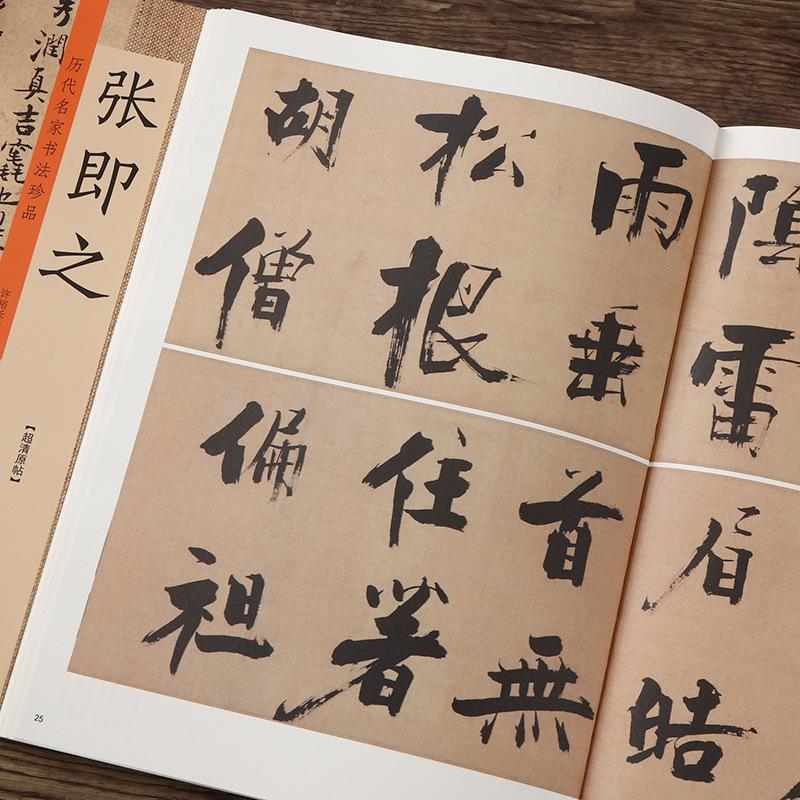 张即之
历代名家书法珍品
【超清原帖】
潤真吉
陰雷
雨垂
松根
胡僧
眉皓
首無
住著
偏袒
25